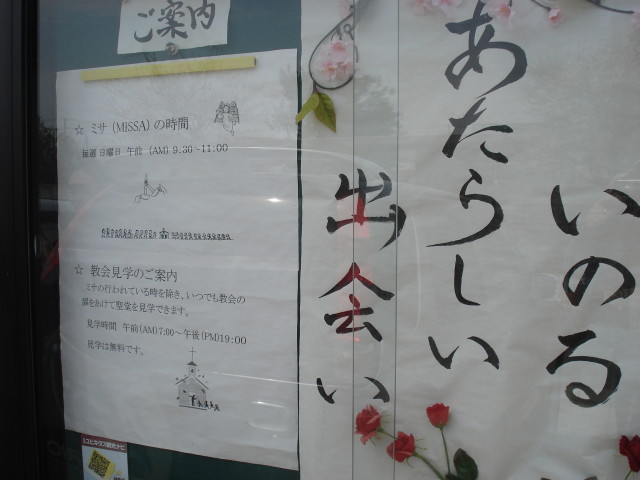 ご案内
☆ ミサ (MISSA) の時間
毎週 日曜日 午前 (AM) 9:30~11:00
☆ 教会見学のご案内
ミサの行われている時を除き、いつでも教会の
扉をあけて聖堂を見学できます。
見学時間 午前(AM)7:00~午後(PM)19:00
見学は無料です。
いのる
あたらしい
出会い